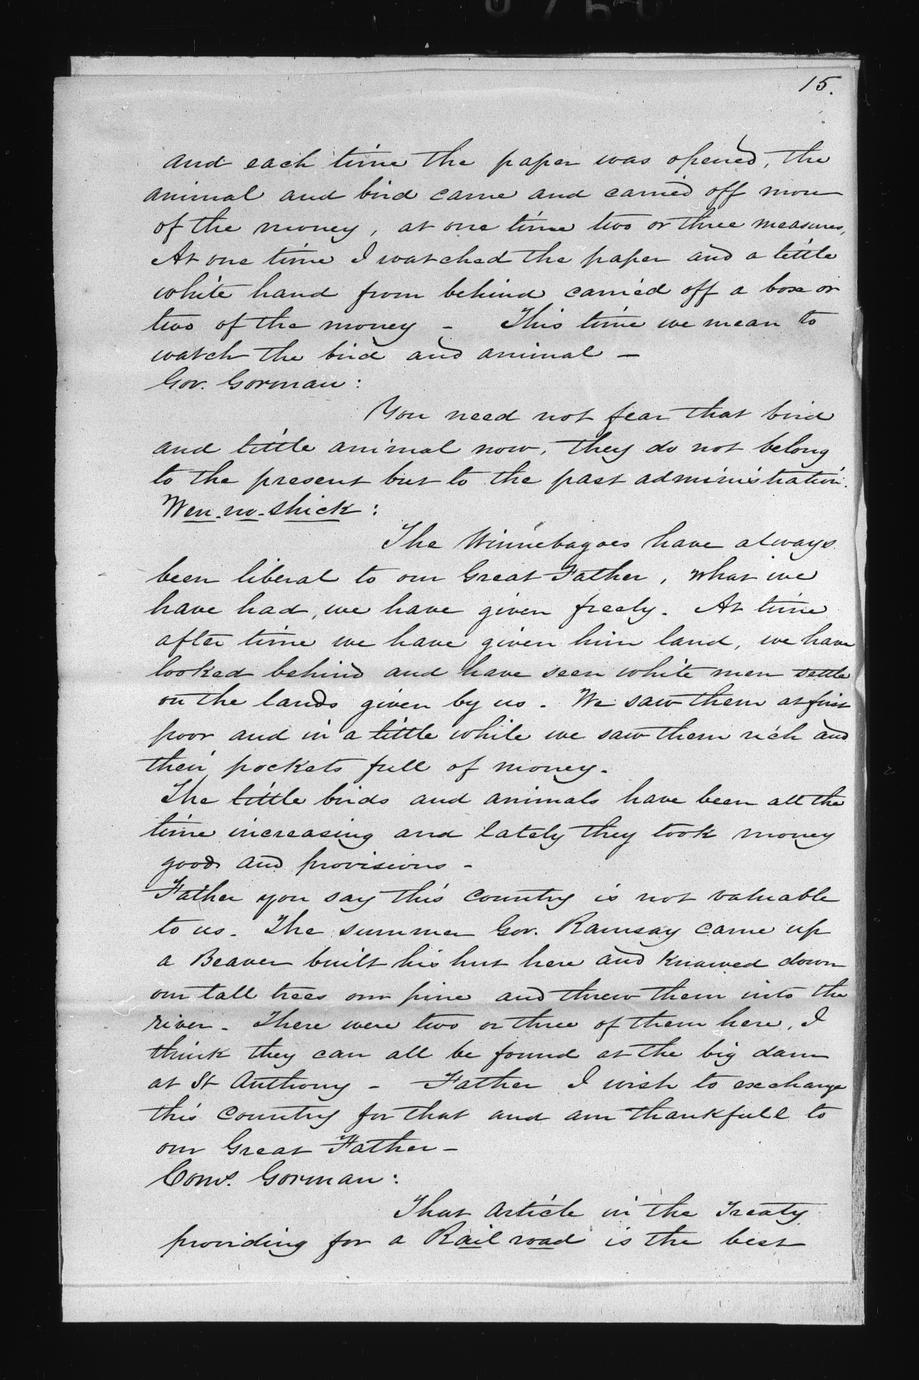 15.
and each time the paper was opened, the
animal and bird came and carried off more
of the money, at one time two or three measures,
At one time I watched the paper and a little
white hand from behind carried off a box or
two of the money - This time we mean to
watch the bird and animal -
Gov. Gorman:
You need not fear that bird
and little animal now, they do not belong
to the present but to the past administration.
Wen-no-shick:
The Winnebagoes have always
been liberal to our Great Father, what we
have had, we have given freely. At time
after time we have given him land, we have
looked behind and have seen white men settle
on the lands given by us. We saw them at first
poor and in a little while we saw them rich and
their pockets full of money.
The little birds and animals have been all the
time increasing and lately they took money
goods and provisions -
Father you say this country is not valuable
to us. The summer Gov. Ramsay came up
a Beaver built his hut here and knawed down
our tall trees our pine and threw them into the
river. There were two or three of them here, I
think they can all be found at the big dam
at St Anthony - Father I wish to exchange
this country for that and am thankfull to
our Great Father -
Coms. Gorman:
That Article in the Treaty
providing for a Rail road is the best